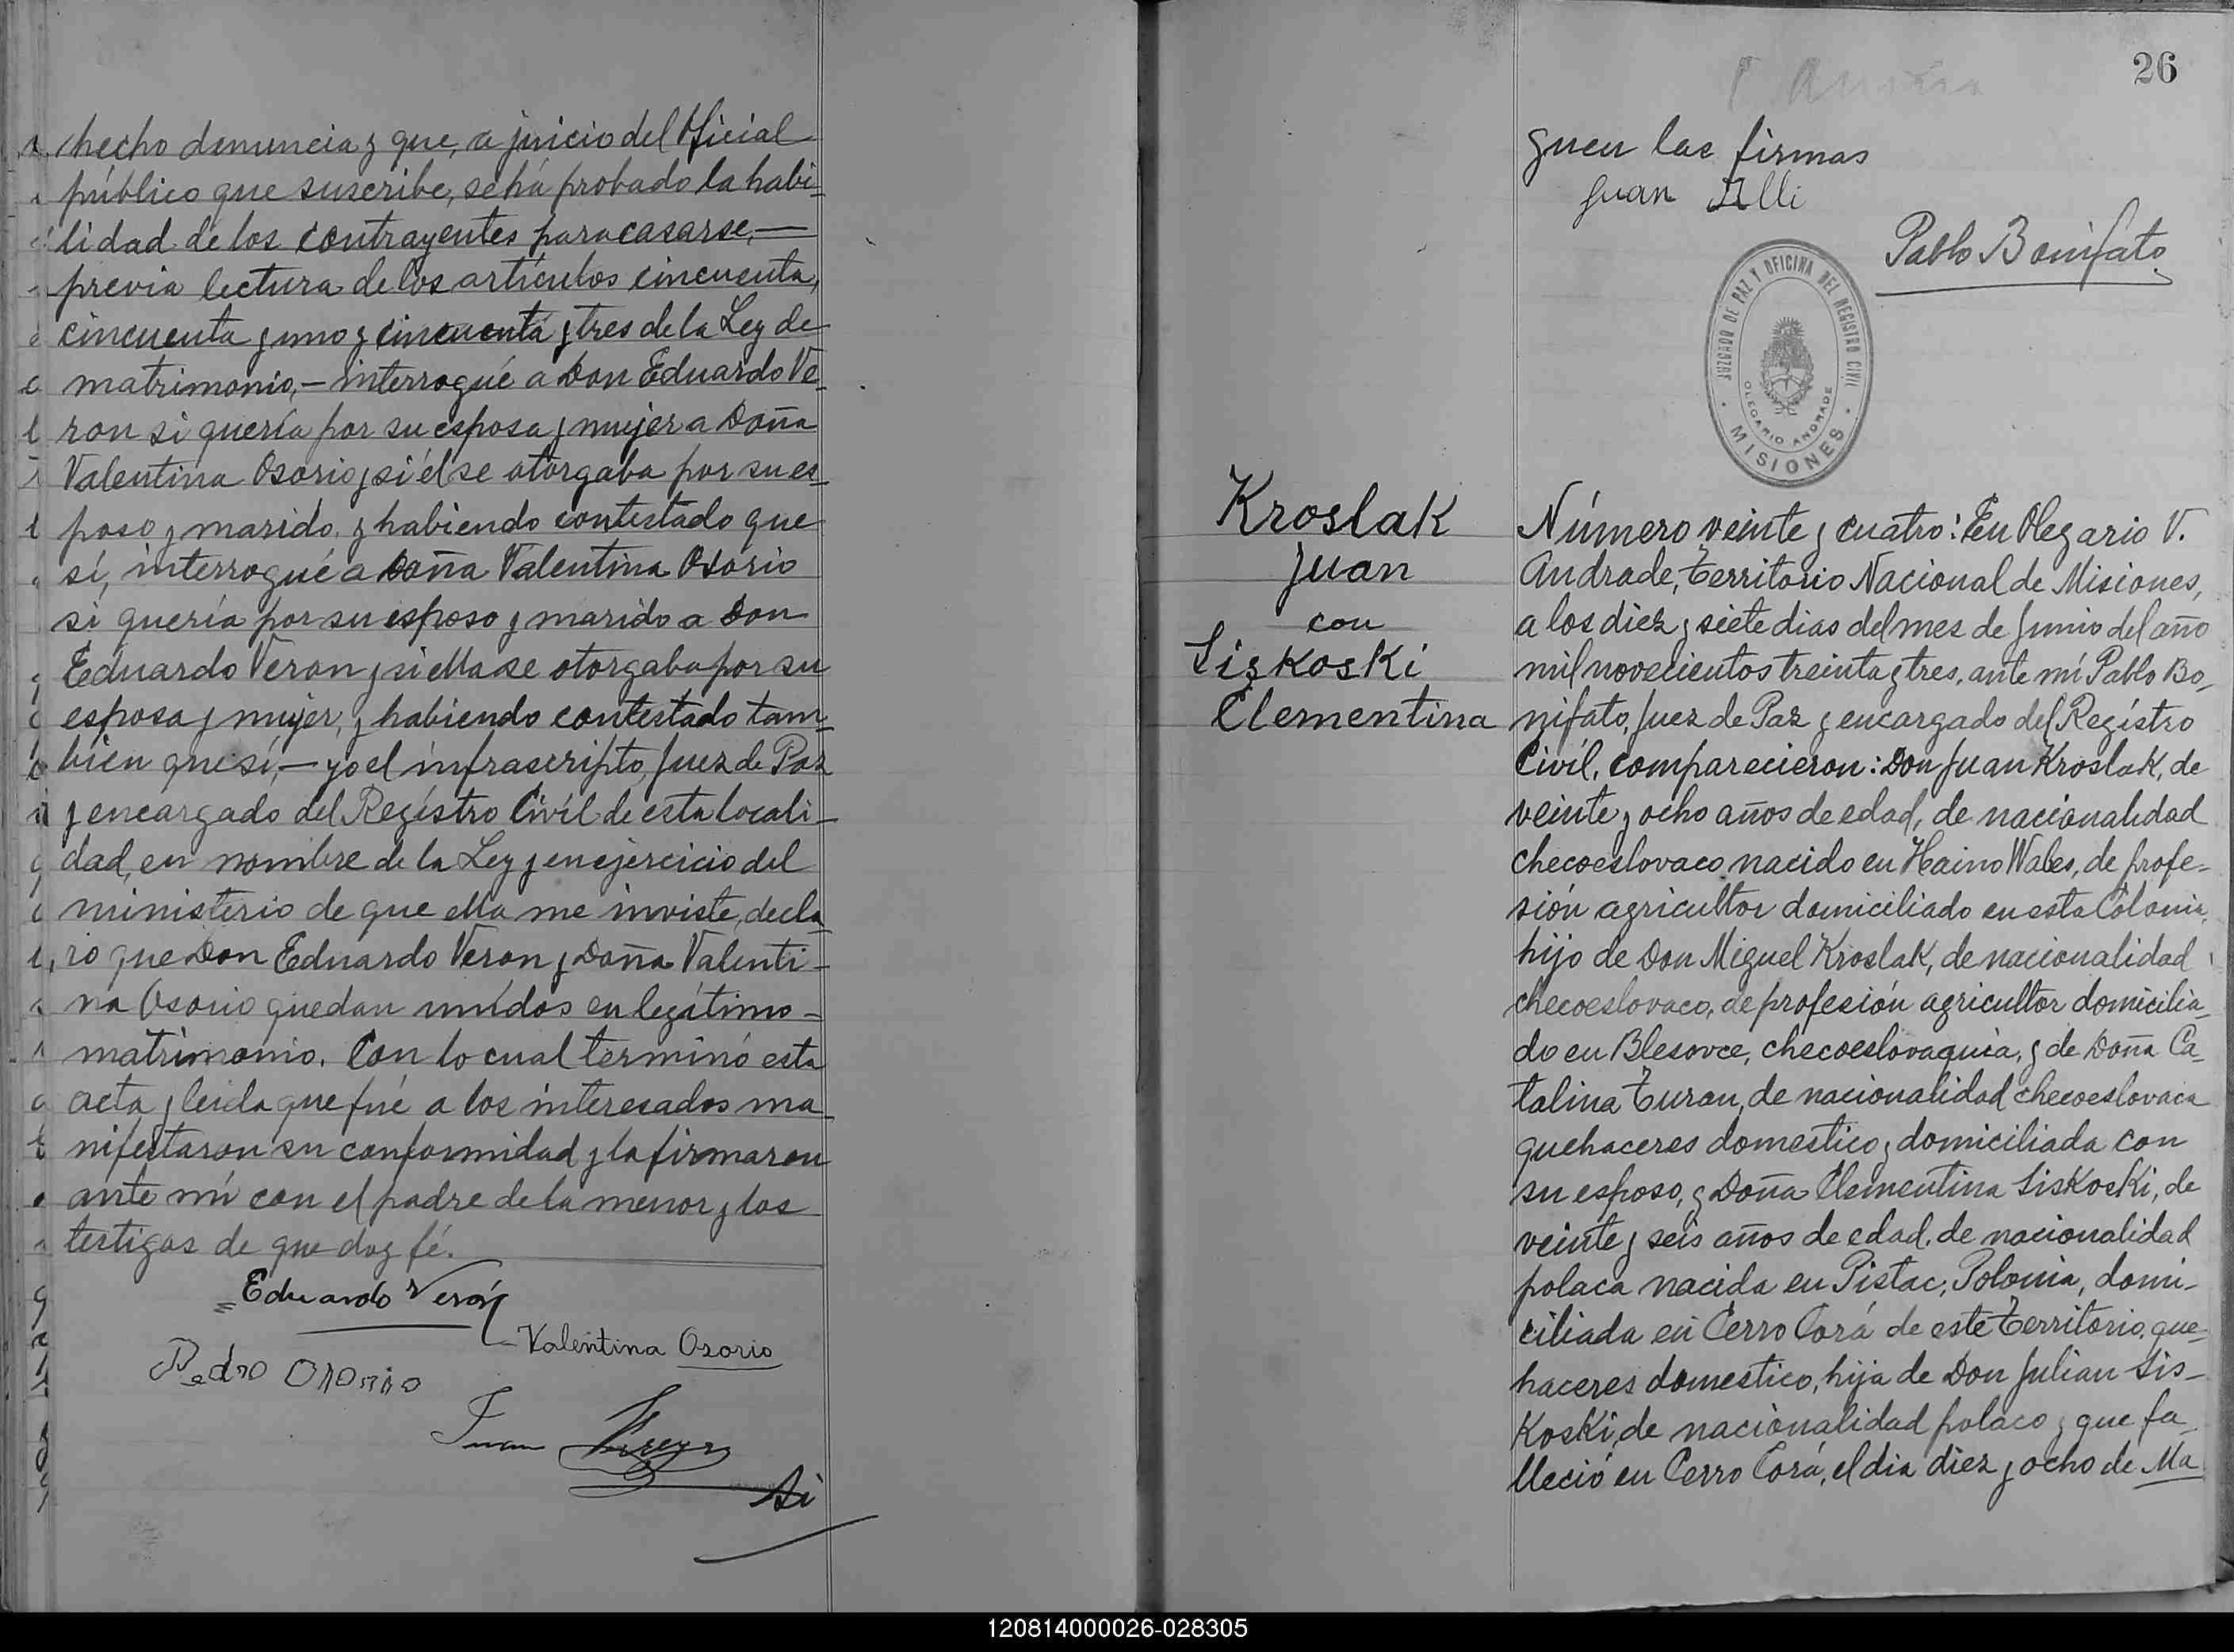 hecho denuncia y que, a juicio del Oficial
público que suscribe, se há probado la habi-
lidad de los contrayentes para casarse,—
previa lectura de los artículos cincuenta,
cincuenta y uno y cincuenta y tres de la Ley de
matrimonio,— interrogué a Don Eduardo Ve-
ron si quería por su esposa y mujer a Doña
Valentina Osorio y si él se otorgaba por su es-
poso y marido, y habiendo contestado que
sí, interrogué a Doña Valentina Osorio
si quería por su esposo y marido a Don
Eduardo Veron y si ella se otorgaba por su
esposa y mujer, y habiendo contestado tam-
bien que sí,— yo el infrascripto, Juez de Paz
y encargado del Regístro Civíl de esta locali-
dad, en nombre de la Ley y en ejercicio del
ministerio de que ella me inviste, decla-
ro que Don Eduardo Veron y Doña Valenti-
na Osorio quedan unídos en legítimo-
matrimonio. Con lo cual terminó esta
acta y leida que fué a los interesados ma-
nifestaron su conformidad y la firmaron
ante mí con el padre de la menor y los
testigos de que doy fé.
Eduardo Verón
Valentina Osorio
Pedro Osorio
Juan
Si
26
guen las firmas
Juan Illi
Pablo Bonifato
JUZGADO DE PAZ Y OFICINA DEL REGISTRO CIVIL
OLEGARIO ANDRADE
MISIONES
Kroslak
Juan
con
Siskoski
Clementina
Número veinte y cuatro: En Olegario V.
Andrade, Territorio Nacional de Misiones,
a los diez y siete dias del mes de Junio del año
mil novecientos treinta y tres, ante mí Pablo Bo-
nifato, Juez de Paz y encargado del Regístro
Civíl, comparecieron: Don Juan Kroslak, de
veinte y ocho años de edad, de nacionalidad
checoeslovaco nacido en Haino Wales, de profe-
sión agricultor domiciliado en esta Colonia,
hijo de Don Miguel Kroslak, de nacionalidad
checoeslovaco, de profesión agricultor domicilia-
do en Blesovce, checoeslovaquia, y de Doña Ca-
talina Turan, de nacionalidad checoeslovaca
quehaceres domestico, domiciliada con
su esposo, y Doña Clementina Siskoski, de
veinte y seis años de edad, de nacionalidad
polaca nacida en Pistac, Polonia, domi-
ciliada en Cerro Corá de este Territorio, que-
haceres domestico, hija de Don Julian Sis-
koski, de nacionalidad polaco y que fa-
lleció en Cerro Corá, el dia diez y ocho de Ma
120814000026-028305